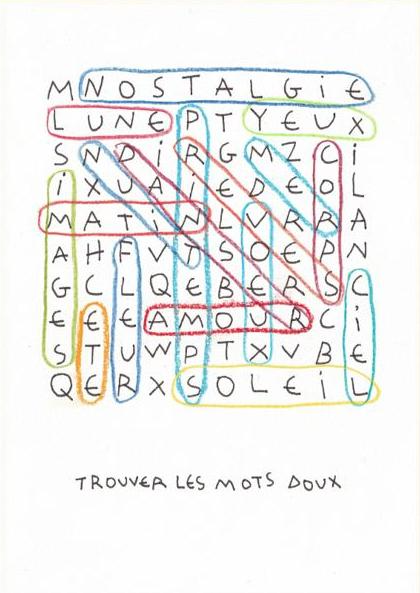 M N O S T A L G i E
L U N E P T Y E U X
S N D i R G M Z C i
i X U A i E D E O L
M A T i N L V R R A
A H F V T S O E P N
G C L Q E B E R S C
E E E A M O U R C i
S T U W P T X V B E
Q E R X S O L E i L
TROUVER LES MOTS DOUX